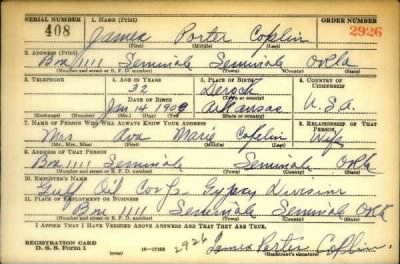 SERIAL NUMBER 1. NAME (Print) ORDER NUMBER
408 James Porter Coplin 2926
(First) (Middle) (Last)
2. ADDRESS (Print)
Box 1111 Seminole Seminole Okla
(Number and street or R. F. D. number) (Town) (County) (State)
3. TELEPHONE 4. AGE IN YEARS 5. PLACE OF BIRTH 6. COUNTRY OF CITIZENSHIP
32 Deroch
(Town or county)
DATE OF BIRTH
Jan 14 1909 Arkansas U.S.A.
(Exchange) (Number) (Mo.) (Day) (Yr.) (State or country)
7. NAME OF PERSON WHO WILL ALWAYS KNOW YOUR ADDRESS 8. RELATIONSHIP OF THAT PERSON
Mrs Ava Marie Coplin Wife
(Mr., Mrs., Miss) (First) (Middle) (Last)
9. ADDRESS OF THAT PERSON
Box 1111 Seminole Seminole Okla
(Number and street or R. F. D. number) (Town) (County) (State)
10. EMPLOYER'S NAME
Gulf Oil Corp. Gypsy Division
11. PLACE OF EMPLOYMENT OR BUSINESS
Box 1111 Seminole Seminole Okla
(Number and street or R. F. D. number) (Town) (County) (State)
I AFFIRM THAT I HAVE VERIFIED ABOVE ANSWERS AND THAT THEY ARE TRUE.
REGISTRATION CARD
D. S. S. Form 1 (over) 16—17105 2926 James Porter Coplin
(Registrant's signature)